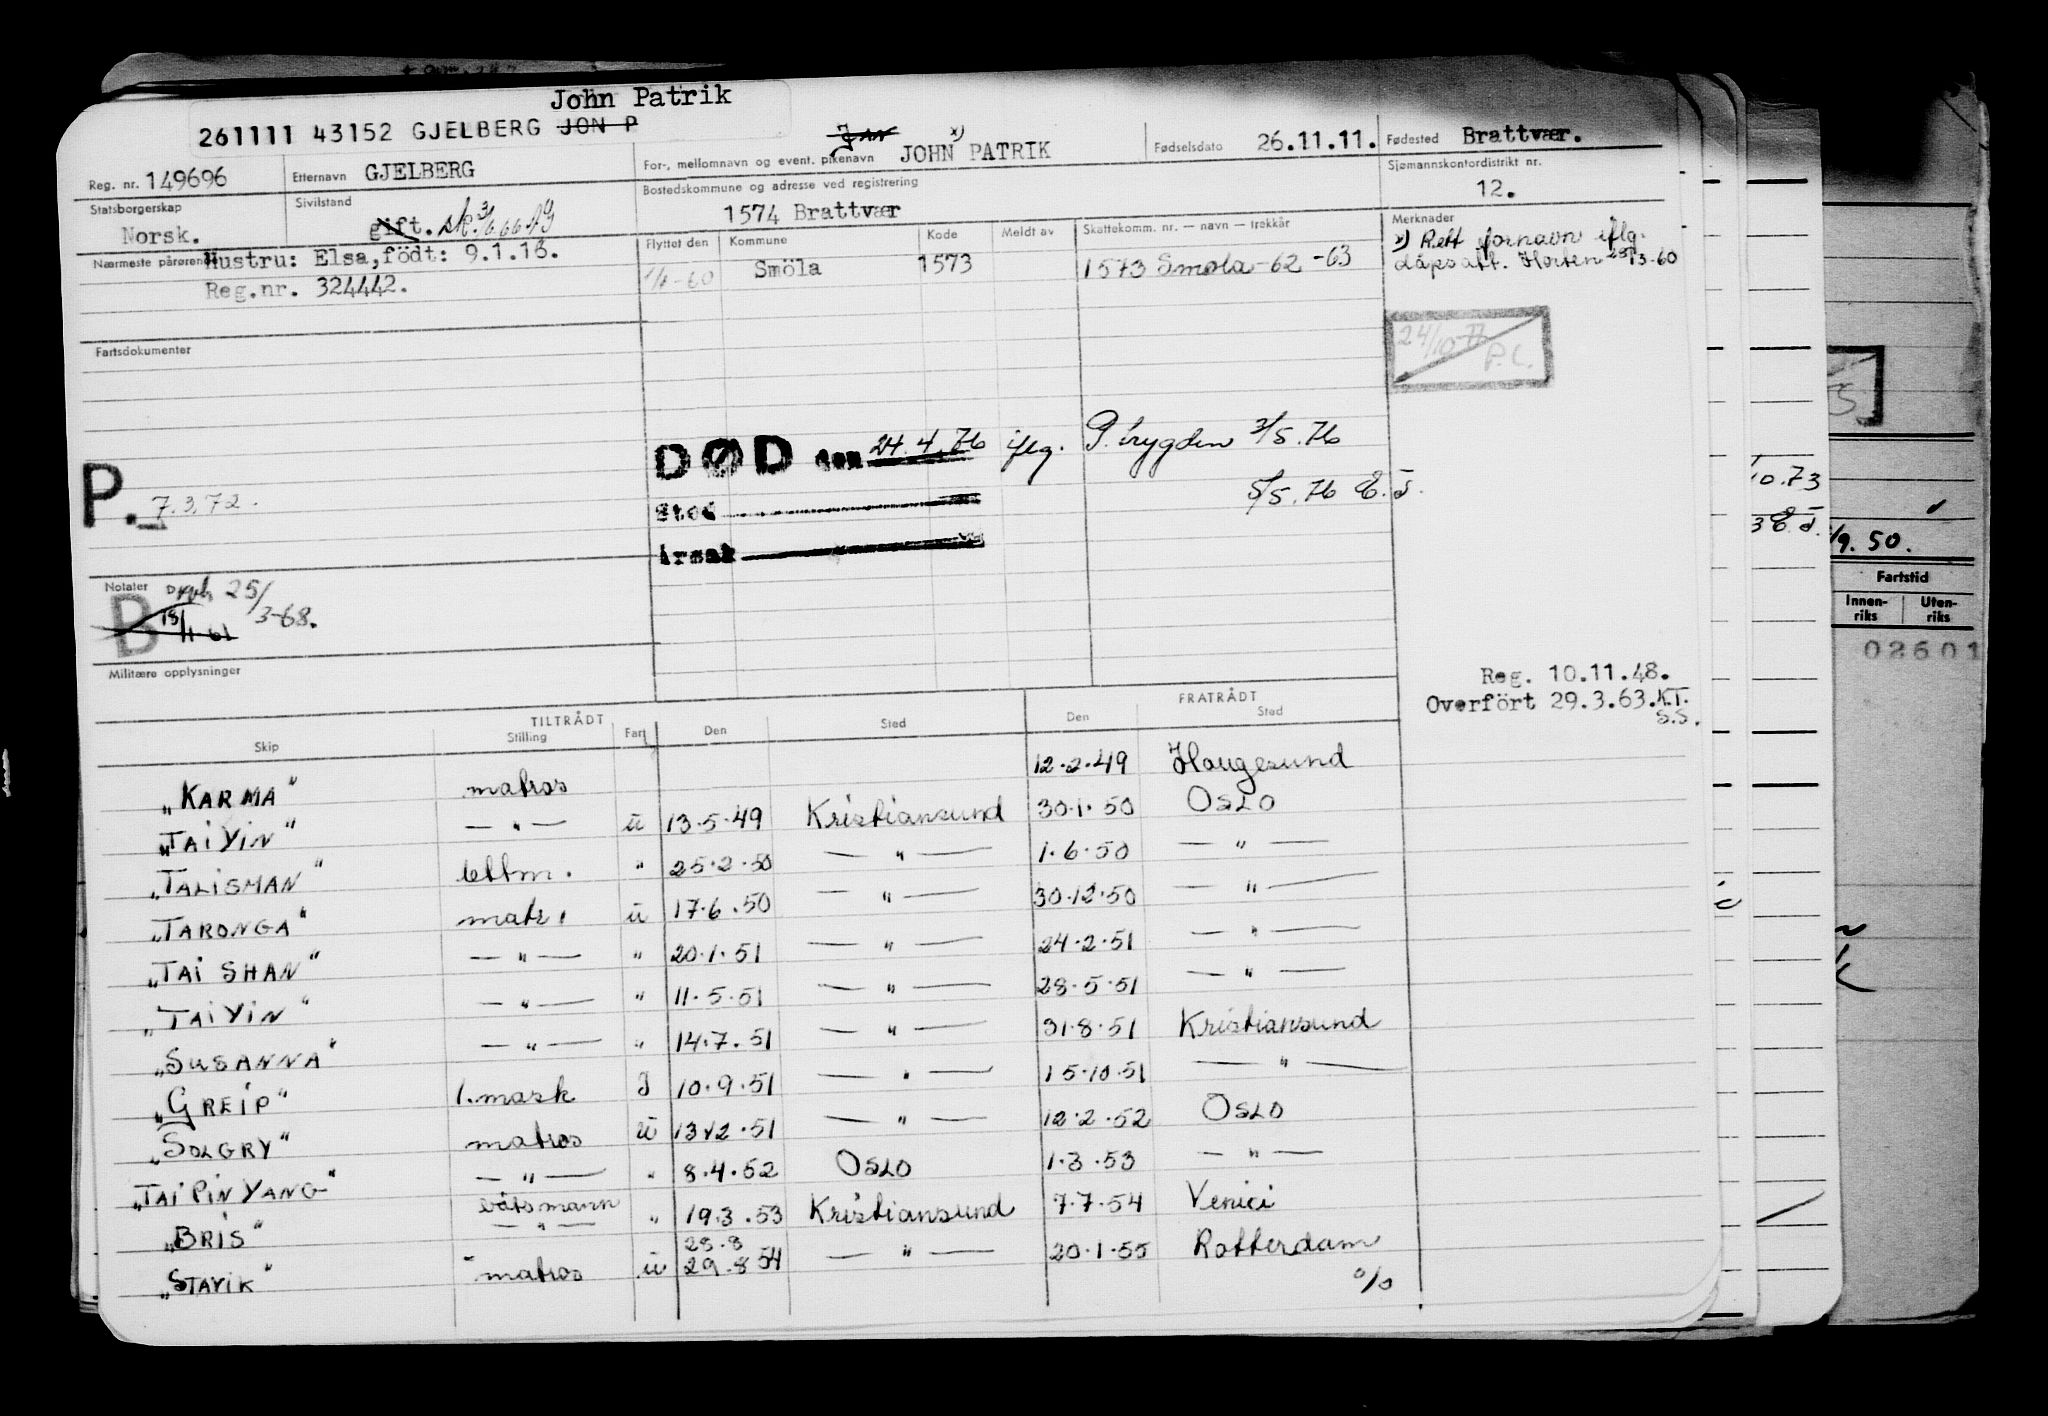 John Patrik
261111 43152 GJELBERG JON P
Reg. nr. 149696 Etternavn GJELBERG For-, mellomnavn og event. pikenavn Jan x) JOHN PATRIK Fødselsdato 26.11.11. Fødested Brattvær.
Statsborgerskap Norsk. Sivilstand gift. Bostedskommune og adresse ved registrering 1574 Brattvær Sjømannskontordistrikt nr. 12.
Nærmeste pårørende Hustru: Elsa, födt: 9.1.16.
Reg.nr. 324442.
Flyttet den Kommune Kode Meldt av Skattekomm. nr. — navn — trekkår Merknader
1/1-60 Smöla 1573 1573 Smøla -62 -63
x) Rett fornavn iflg.
dåpsatt. Horten 23/3-60
Fartsdokumenter
24/10-77 P.L.
DØD den 24.4.76 iflg. P.trygden 3/5.76
Sted 5/5.76 E.J.
Årsak
P. 7.3.72.
Notater
B 25/3-68.
Militære opplysninger
Reg. 10.11.48.
Overfört 29.3.63. K.T.
S.S.
TILTRÅDT FRATRÅDT
Skip Stilling Fart Den Sted Den Sted
„KARMA" matros 12.2.49 Haugesund
„TAI YIN" —"— u 13.5.49 Kristiansund 30.1.50 OSLO
„TALISMAN" lettm. " 25.2.50 —"— 1.6.50 —"—
„TARONGA" matr. u 17.6.50 —"— 30.12.50 —"—
„TAI SHAN" —"— " 20.1.51 —"— 24.2.51 —"—
„TAI YIN" —"— " 11.5.51 —"— 28.5.51 —"—
„SUSANNA" —"— " 14.7.51 —"— 31.8.51 Kristiansund
„GREIP" 1.mask J 10.9.51 —"— 15.10.51 —"—
„SOLGRY" matros u 13.12.51 —"— 12.2.52 OSLO
„TAI PIN YANG" —"— " 8.4.52 OSLO 1.3.53 —"—
„BRIS" båtsmann —"— " 19.3.53 Kristiansund 7.7.54 Venici
„STAVIK" matros u 28.8 29.8 54 —"— 20.1.55 Rotterdam
o/o
10.73
/9. 50.
Fartstid
Innen-riks Uten-riks
02601